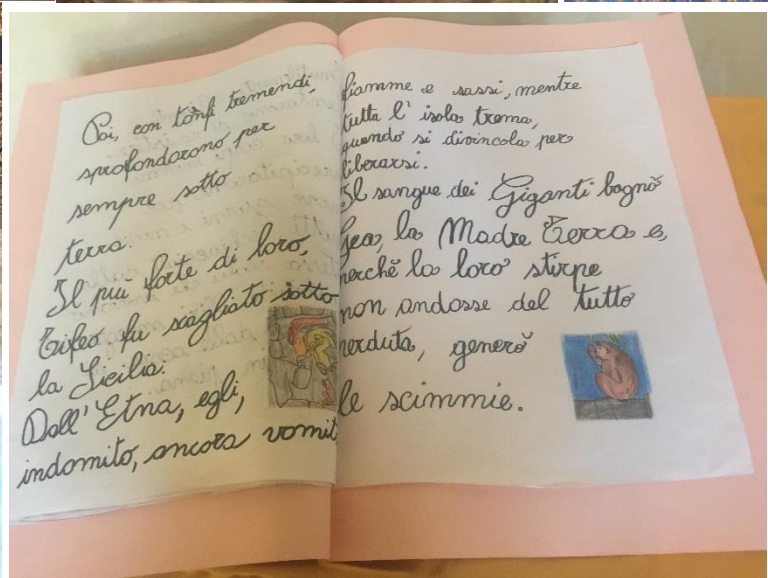 Poi, con tonfi tremendi,
sprofondarono per
sempre sotto
terra.
Il più forte di loro,
Tifeo fu scagliato sotto
la Sicilia.
Dall'Etna, egli,
indomito, ancora vomit
fiamme e sassi, mentre
tutta l'isola trema,
quando si divincola per
liberarsi.
Il sangue dei Giganti bagnò
Gea, la Madre Terra e,
perchè la loro stirpe
non andasse del tutto
perduta, generò
le scimmie.